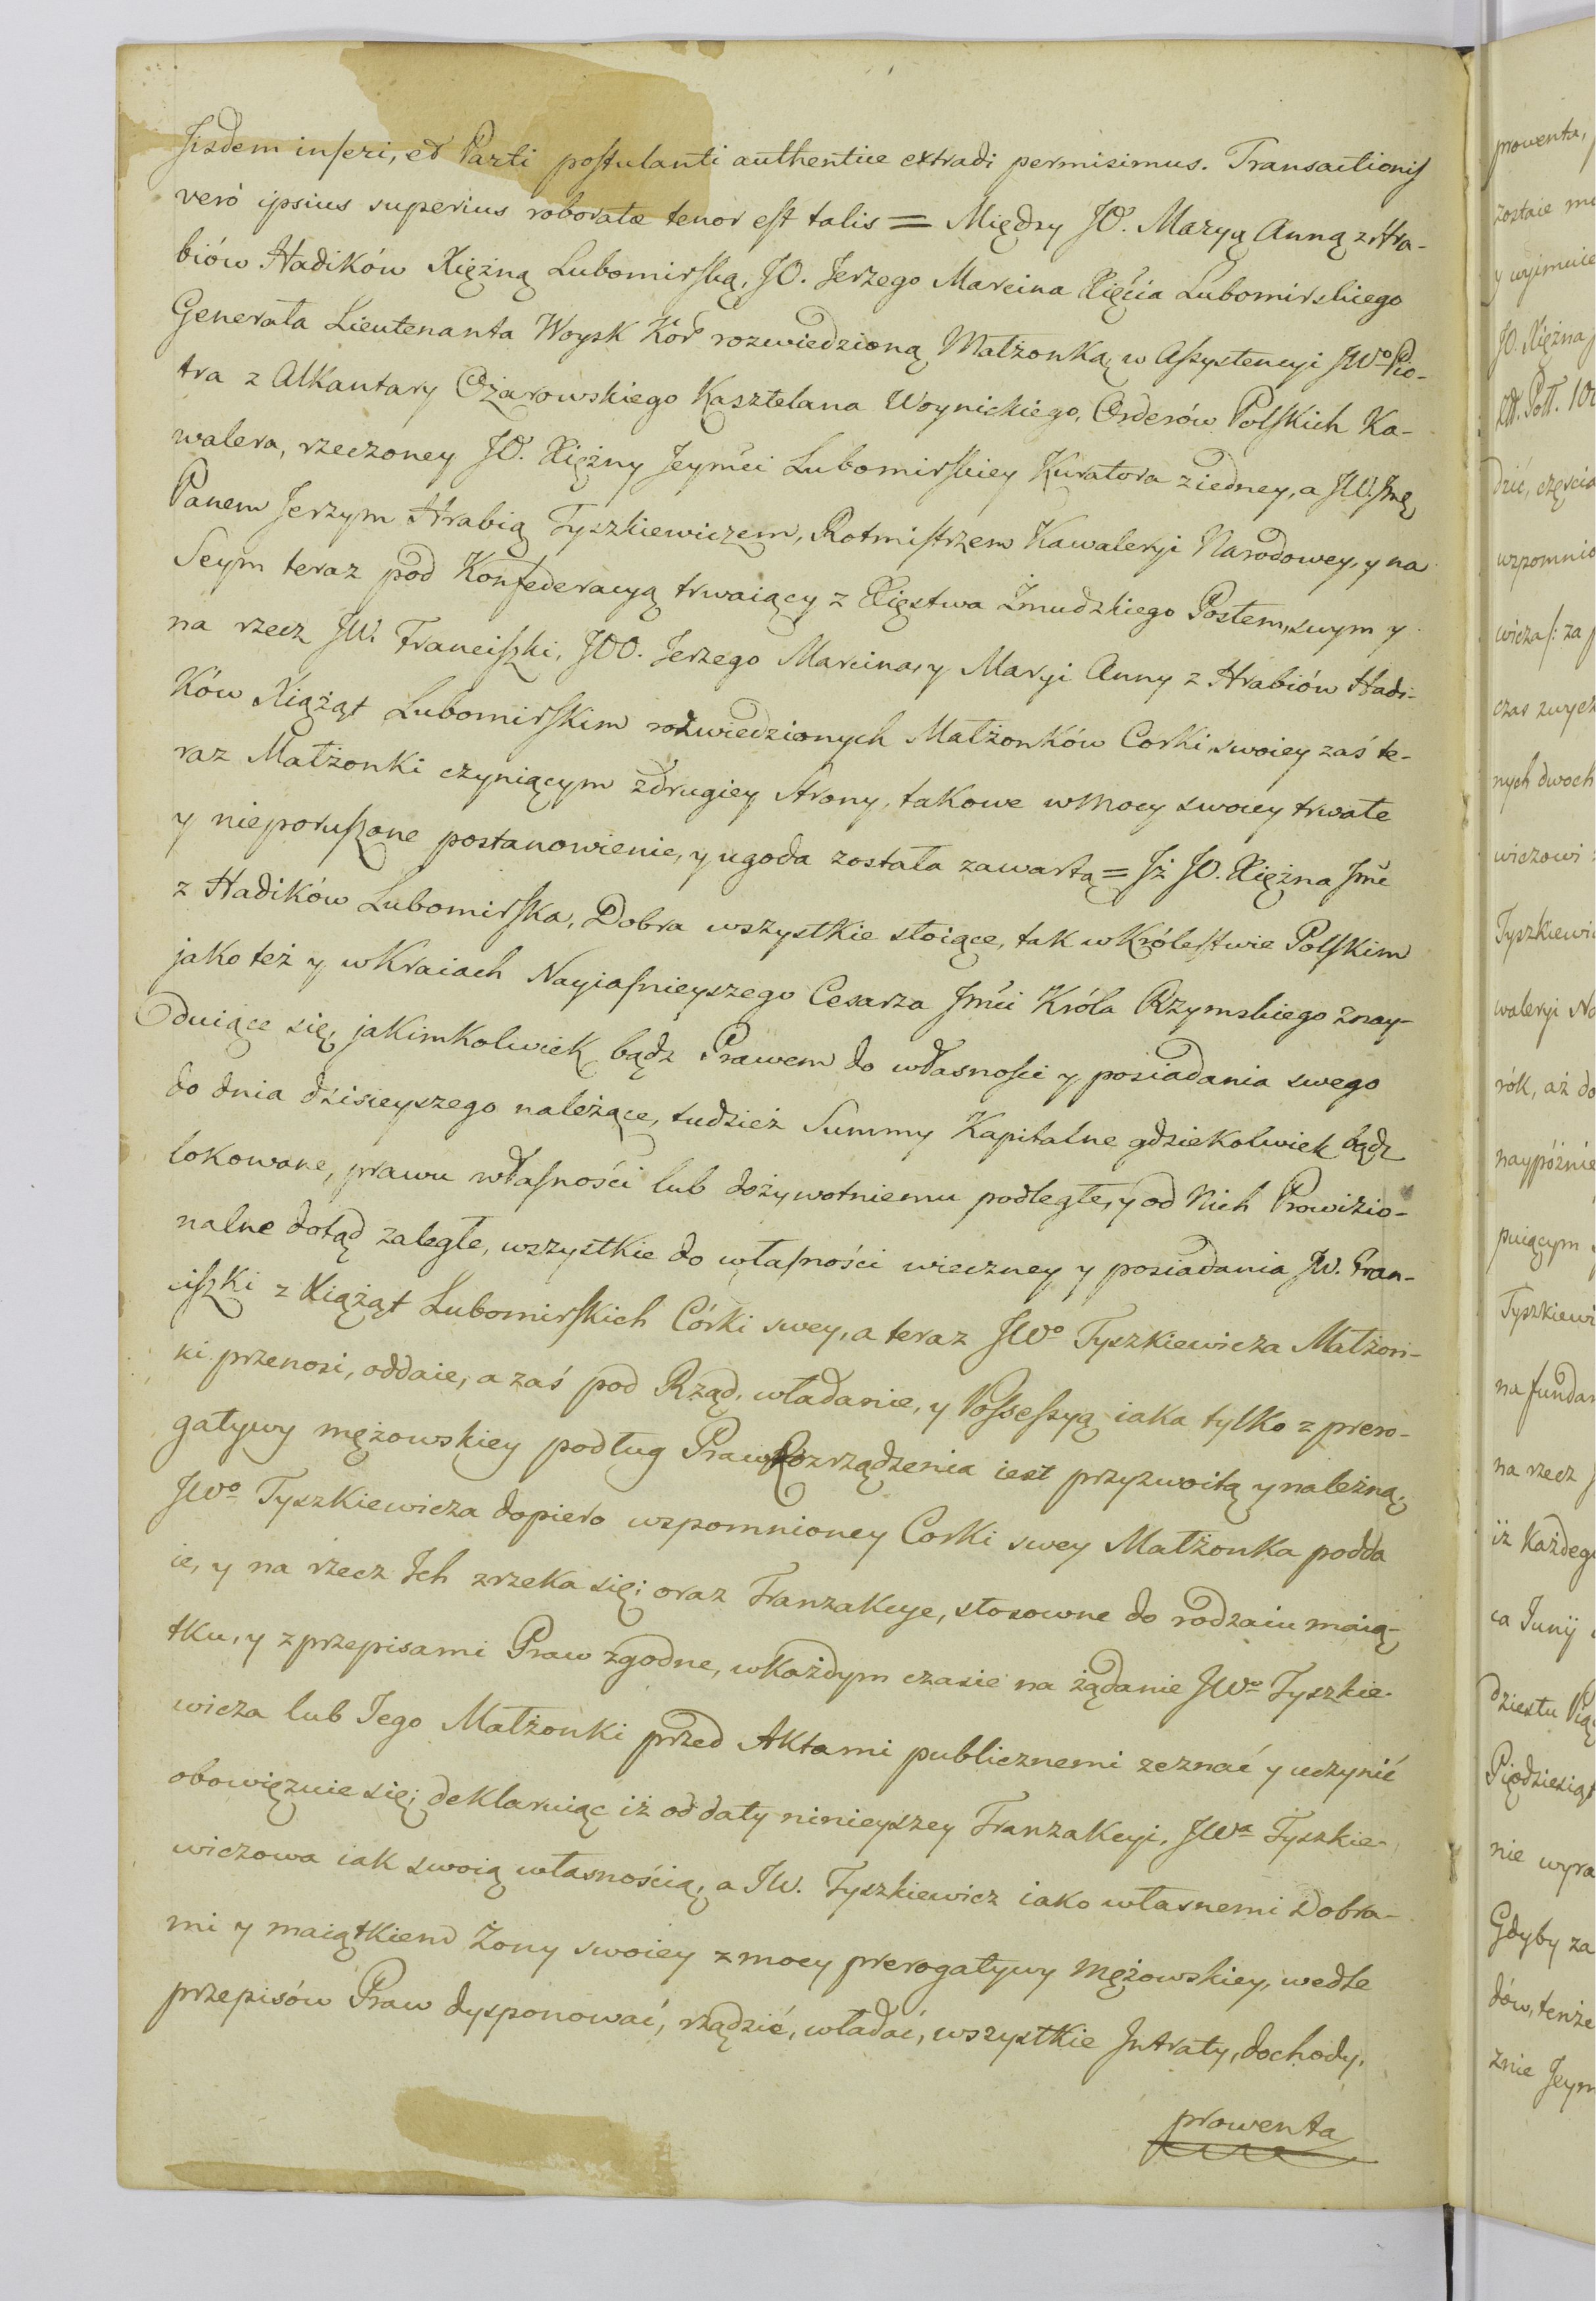 Iisdem inseri, et Parti postulanti authentice extradi permisimus. Transactionis
verò ipsius superius roboratæ tenor est talis = Między JO. Maryą Anną z Hra-
biów Hadików Xiężną Lubomirską, JO. Jerzego Marcina Xięcia Lubomirskiego
Generała Lieutenanta Woysk Kor: rozwiedzioną Małżonką, w Assystencyi JWo Pio-
tra z Alkantary Ożarowskiego Kasztelana Woynickiego, Orderów Polskich Ka-
walera, rzeczoney JO. Xiężny Jeymci Lubomirskiey Kuratora z iedney, a JW. Jmę
Panem Jerzym Hrabią Tyszkiewiczem, Rotmistrzem Kawaleryi Narodowey, y na
Seym teraz pod Konfederacyą trwaiący z Xięstwa Żmudzkiego Posłem, swym y
na rzecz JW. Franciszki, JOO. Jerzego Marcina, y Maryi Anny z Hrabiów Hadi-
ków Xiążąt Lubomirskim rozwiedzionych Małżonków Corki, swoiey zaś te-
raz Małżonki czyniącym z drugiey strony, takowe w mocy swoiey trwałe
y nieporuszone postanowienie, y ugoda została zawartą = Iż JO. Xiężna Jmć
z Hadików Lubomirska, Dobra wszystkie stoiące, tak w Królestwie Polskim
jako też y w Kraiach Nayiasnieyszego Cesarza Jmći Króla Rzymskiego znay-
duiące się, jakimkolwiek bądz Prawem do własności y posiadania swego
do dnia dzisieyszego należące, tudzież Summy Kapitalne gdziekolwiek bądz
lokowane, prawu własności lub dożywotniemu podległe, y od nich Prowizio-
nalne dotąd zaległe, wszystkie do własności wieczney y posiadania JW. Fran-
ciszki z Xiążąt Lubomirskich Córki swey, a teraz JWo Tyszkiewicza Małżon-
ki przenosi, oddaie, a zaś pod Rząd, władanie, y Possessyą iaka tylko z prero-
gatywy mężowskiey podług Praw Rozrządzenia iest przyzwoitą y należną,
JWo Tyszkiewicza dopiero wspomnioney Corki swey Małżonka podda
ie, y na rzecz Ich zrzeka się; oraz Tranzakcye, stosowne do rodzaiu maią-
tku, y z przepisami Praw zgodne, w każdym czasie na żądanie JWo Tyszkie-
wicza lub Jego Małżonki przed Aktami publicznemi zeznać y uczynić
obowięzuie się; deklaruiąc iż od daty ninieyszey Tranzakcyi, JWa Tyszkie-
wiczowa iak swoią własnością, a JW. Tyszkiewicz iako własnemi Dobra-
mi y maiątkiem Żony swoiey z mocy prerogatywy mężowskiey, wedle
przepisów Praw dysponować, rządzić, władać, wszystkie Intraty, dochody,
prowenta
prowenta,
zostaie
y wyimuie
JO. Xiężna
wspomnio
wicza /: za
czas
nych dwoch
wiczowi
Tyszkiewi
waleryi
rók, aż do
naypóźnie
puiącym
Tyszkiewi
na fundam
na rzecz
iż każdego
ca Junij
dziestu
Pięcdziesiąt
nie wyra
Gdyby za
dów, tenże
znie Jeym